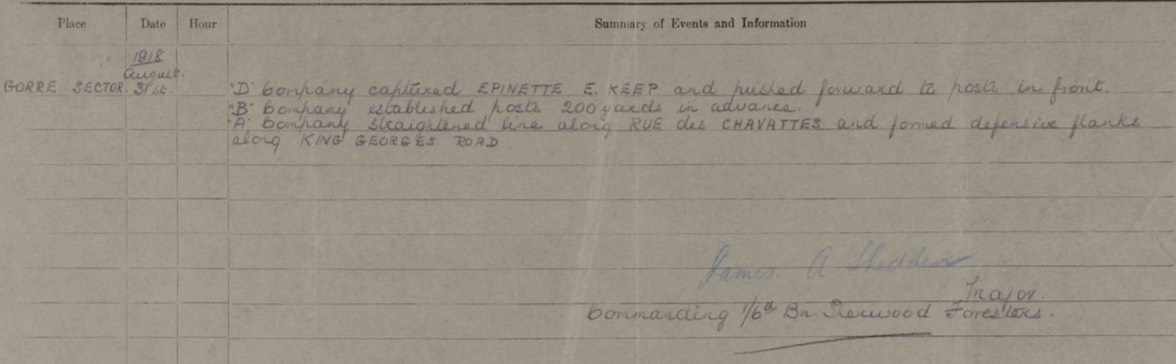 Place Date Hour Summary of Events and Information
1918
August.
GORRE SECTOR. 31st. "D" Company captured EPINETTE E. KEEP and pushed forward to posts in front.
"B" Company established posts 200 yards in advance.
"A" Company straightened line along RUE des CHAVATTES and formed defensive flanks
along KING GEORGES ROAD
James A
Major.
Commanding 1/6th Bn. Sherwood Foresters.